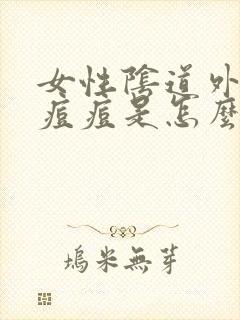 女性陰道外
痘痘是怎麼
塢米無芽